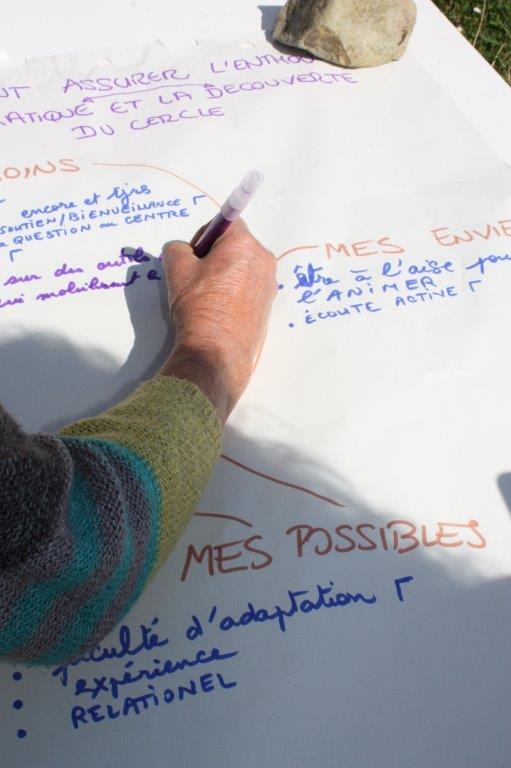 NT ASSURER L'ENTHOU
RATIQUE ET LA DÉCOUVERTE
DU CERCLE
OINS
encore et tjrs
SOUTIEN/BIENVEILLANCE
QUESTION au CENTRE
sur des outils
qui mobilisent
MES ENVIE
• être à l'aise pou
l'ANIMER
• ÉCOUTE ACTIVE
MES POSSIBLES
• faculté d'adaptation
• expérience
• RELATIONEL